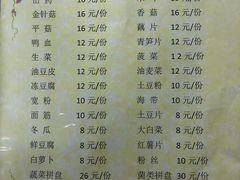 山药 16 元/份
金针菇 16 元/份 香菇 16 元/份
平菇 12 元/份 藕片 12 元/份
鸭血 12 元/份 青笋片 12 元/份
生菜 12 元/份 菠菜 12 元/份
油豆皮 12 元/份 油麦菜 12 元/份
冻豆腐 12 元/份 土豆粉 12 元/份
宽粉 10 元/份 海带 10 元/份
面筋 10 元/份 土豆片 8 元/份
冬瓜 8 元/份 大白菜 8 元/份
鲜豆腐 8 元/份 红薯片 8 元/份
白萝卜 8 元/份 粉丝 8 元/份
蔬菜拼盘 26 元/份 菌类拼盘 30 元/份